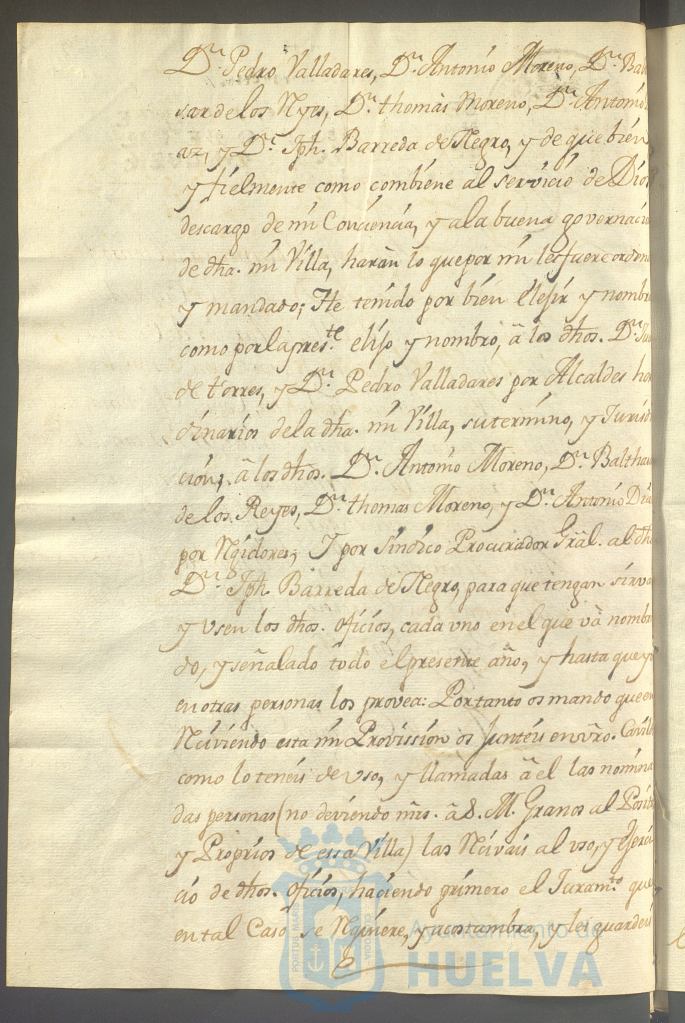 Dn. Pedro Valladares, Dn. Antonio Moreno, Dn. Bal
sar de los Reyes, Dn. thomàs Moreno, Dn. Antonio
az, y Dn. Jph. Barreda de Negro, y de que bien
y fielmente como combiene al servicio de Dios
descargo de mi Conciencia, y a la buena governacio
de dha. mi Villa, haràn lo que por mi les fuere orden
y mandado; He tenido por bien elejir y nombr
como por la preste. elijo y nombro, â los dhos. Dn. Ju
de torres, y Dn. Pedro Valladares por Alcaldes hor
dinarios de la dha. mi Villa, su termino, y Jurisd
cion; â los dhos. Dn. Antonio Moreno, Dn. Balthas
de los Reyes, Dn. thomas Moreno, y Dn. Antonio Dia
por Rejidores; Y por Sindico Procurador Grãl. al dho
Dn. Jph. Barreda de Negro, para que tengan sirva
y usen los dhos. oficios, cada uno en el que và nombra
do, y señalado todo el presente año, y hasta que yo
en otras personas los provea: Por tanto os mando que en
Reciviendo esta mi Provission os Junteis en vro. Cavild
como lo teneis de uso, y llamadas â el las nomina
das personas (no deviendo mrs. â S. M. Granos al Posit
y Proprios de essa Villa) las Recivais al uso, y Exerci
cio de dhos. oficios, haciendo primero el Juramto. que
en tal Caso se Requiere, y acostumbra, y les guardeis
Ayuntamiento de
HUELVA